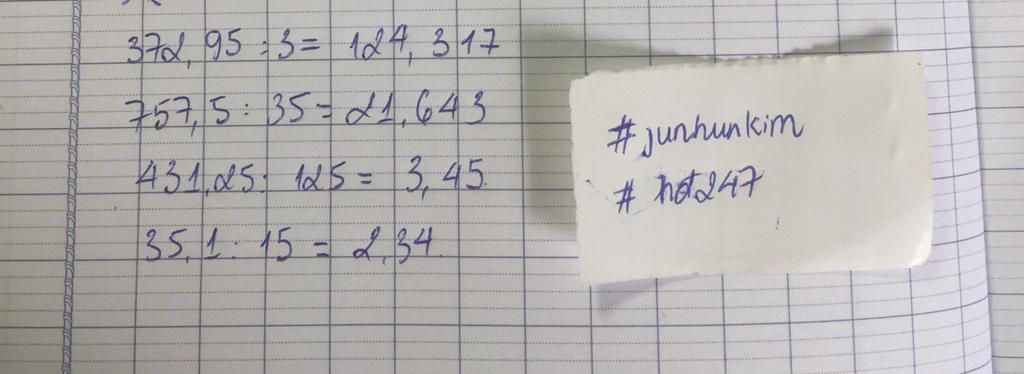 372,95 : 3 = 124,317
757,5 : 35 = 21,643
431,25 : 125 = 3,45.
35,1 : 15 = 2,34.
#junhunkim
# hot247